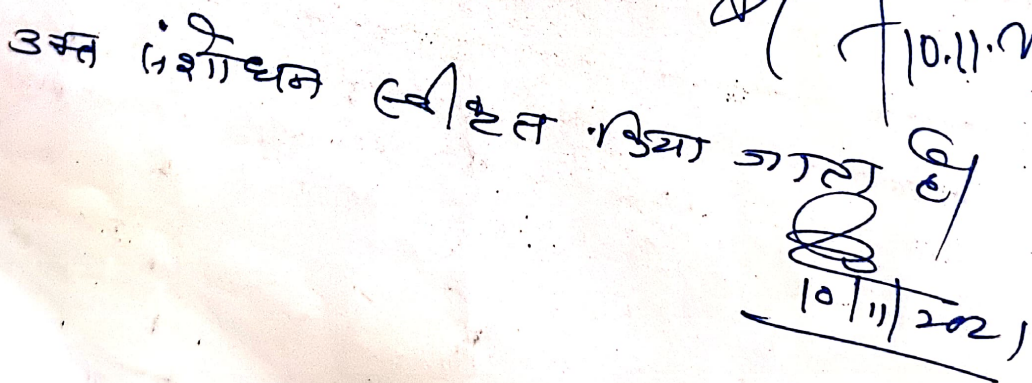 10.11.2
उक्त संशोधन स्वीकृत किया जाता है।
10/11/2021